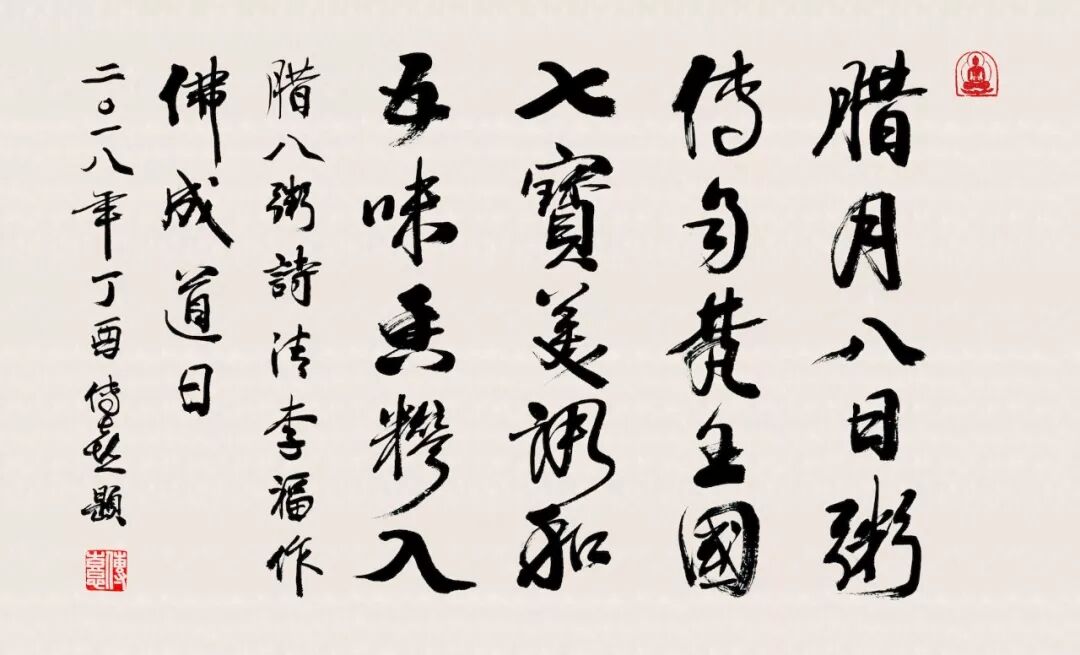 腊月八日粥
傳自梵王國
七寶美調和
五味香糝入
腊八粥詩清李福作
佛成道日
二〇一八年丁酉傳喜題